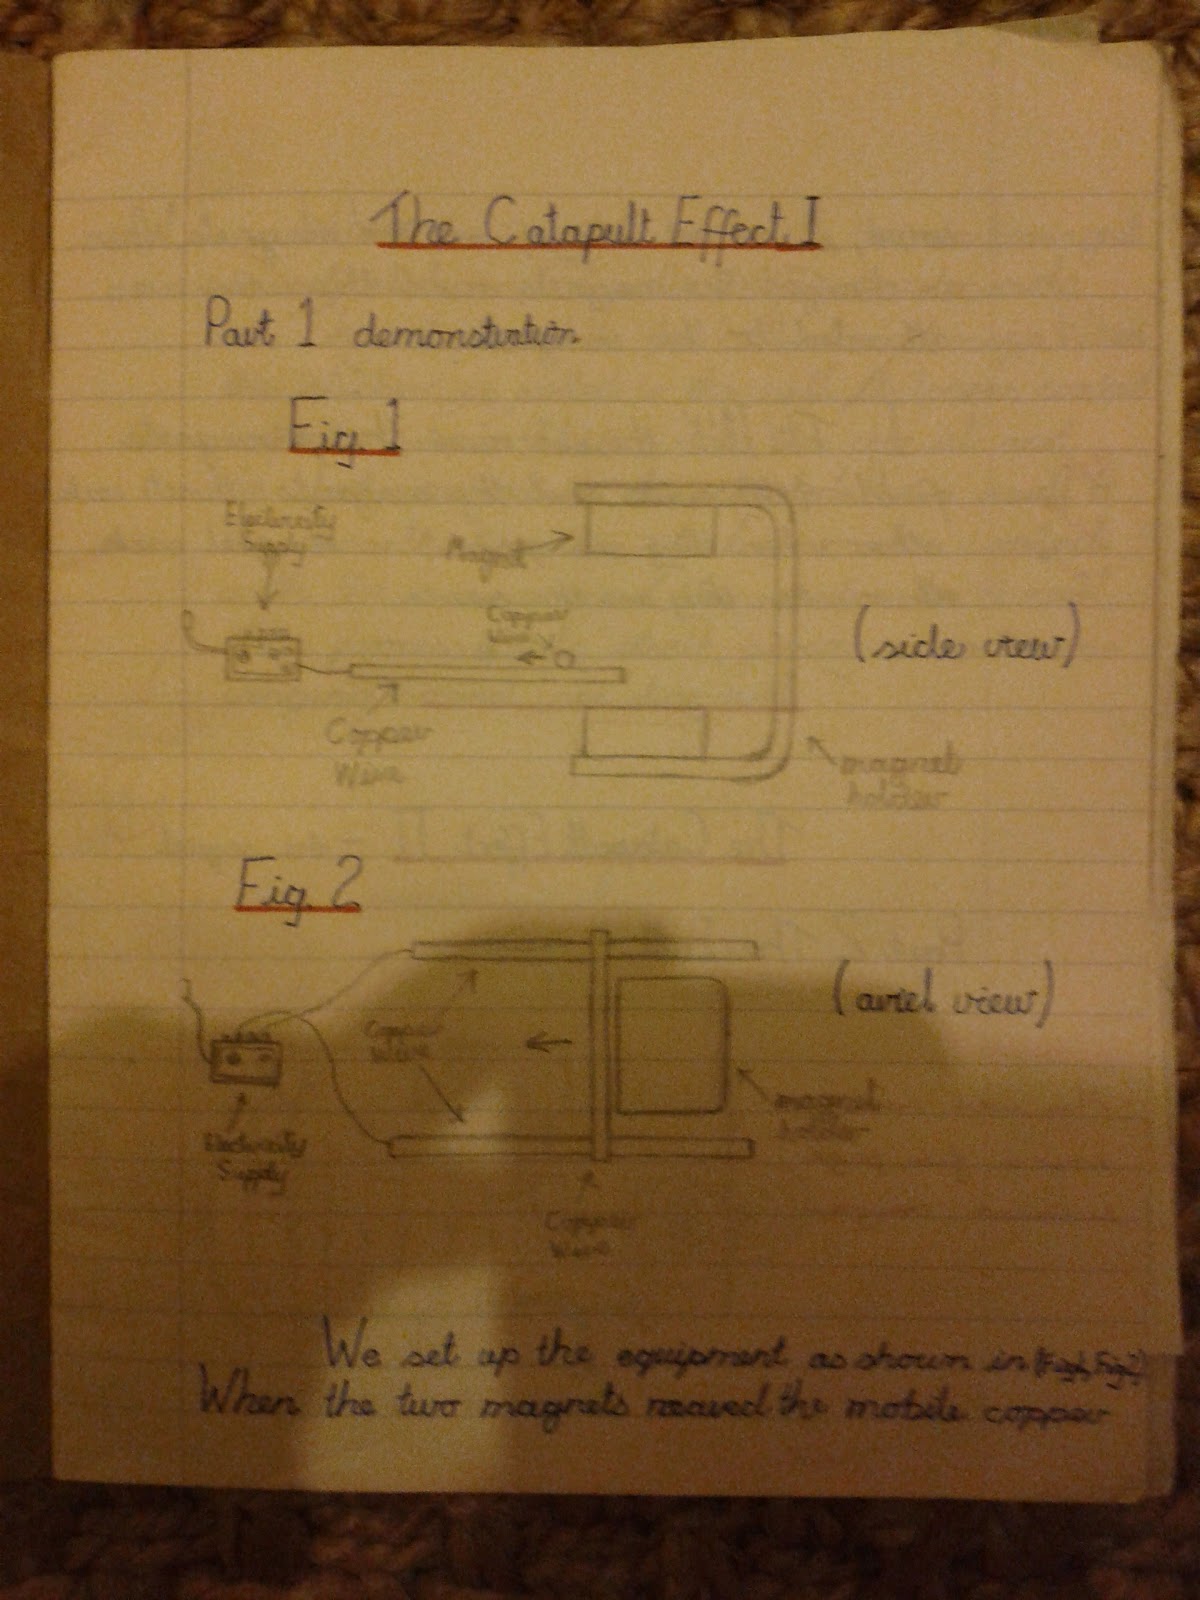 The Catapult Effect I
Part 1 demonstration
Fig. 1
Electricity
Supply
Magnet
Copper
Wire
(side view)
Copper
Wire
magnet
holder
Fig. 2
(ariel view)
Copper
Wire
magnet
holder
Electricity
Supply
Copper
Wire
We set up the equipment as shown in (Fig1, Fig2)
When the two magnets neared the mobile copper